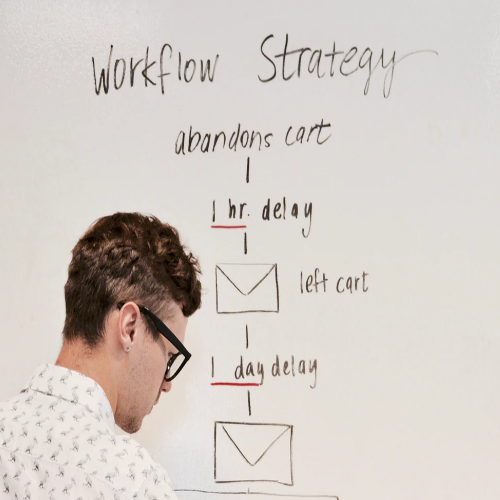 Workflow Strategy
abandons cart
1 hr. delay
left cart
1 day delay